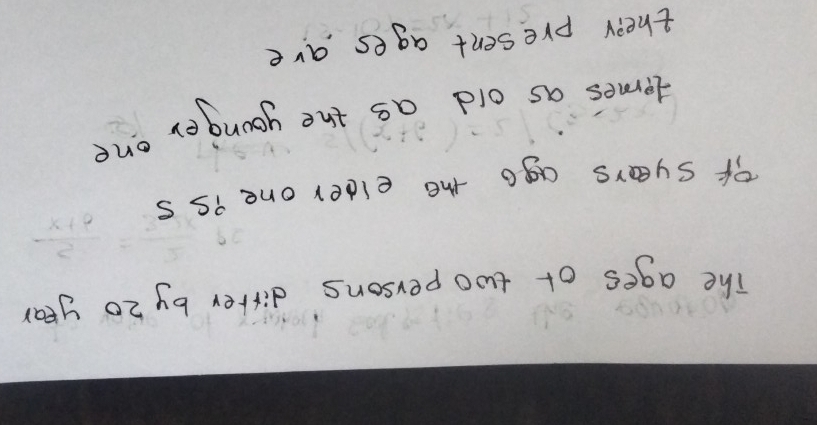 The ages of two persons differ by 20 year
if 5 years ago the elder one is 5
times as old as the younger one
their present ages are